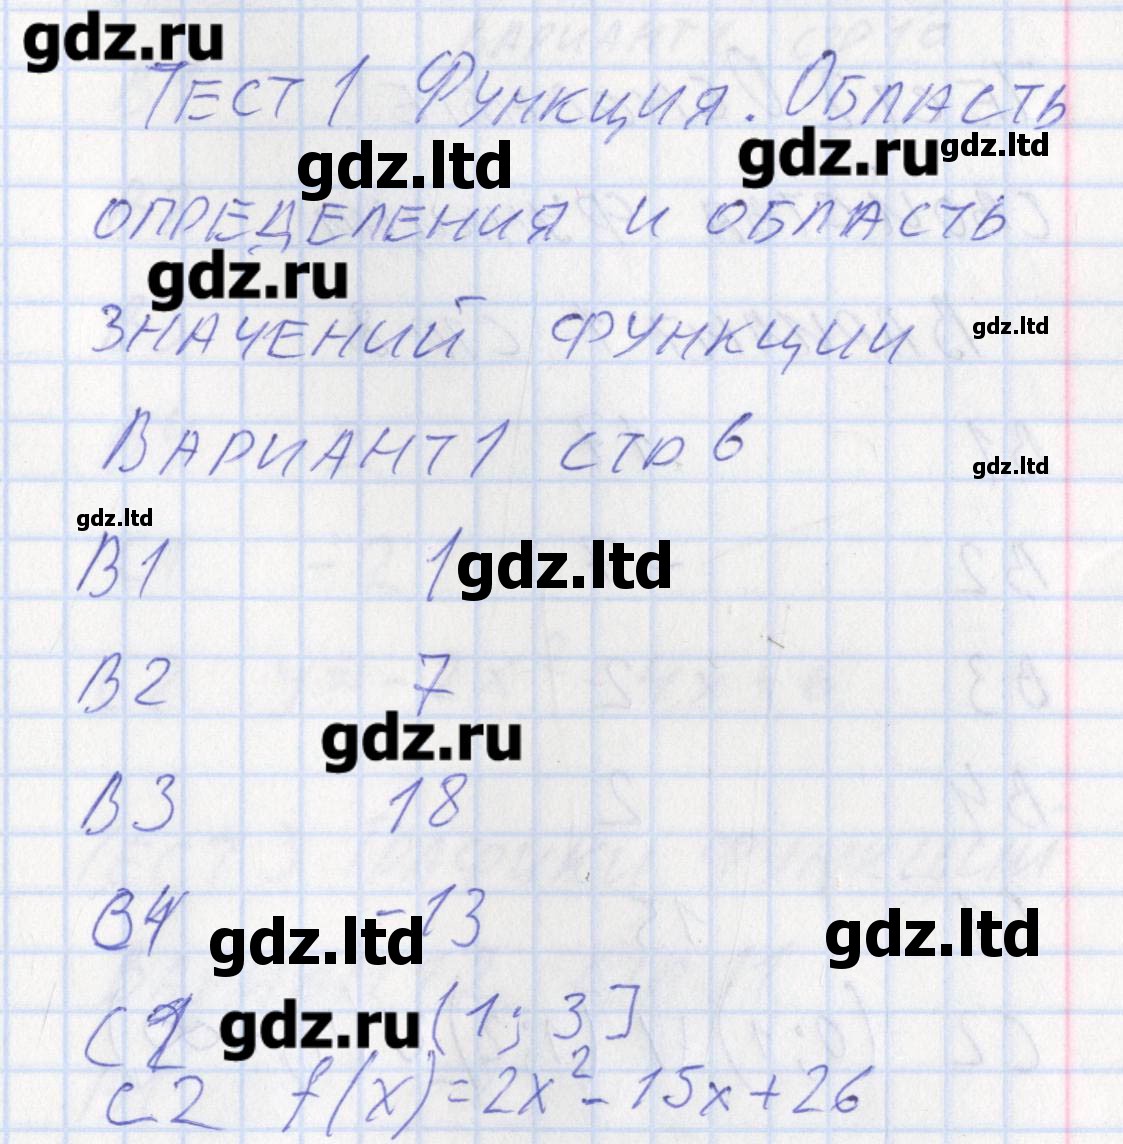 gdz.ru
Тест 1 Функция. Область
gdz.ltd gdz.ru gdz.ltd
определения и область
gdz.ru
значений функции
gdz.ltd
Вариант 1 стр 6
gdz.ltd
gdz.ltd
В1 1 gdz.ltd
В2 7
gdz.ru
В3 18
В4 -13
gdz.ltd gdz.ltd
С1 gdz.ru (1; 3]
С2 f(x) = 2x² - 15x + 26